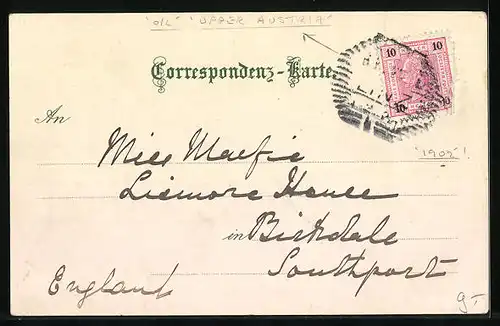 'O/L' 'UPPER AUSTRIA'
10 10
Correspondenz-Karte
10 10
An
Miss Macfie
'1902'!
House
in Birkdale
Southport
England
9-